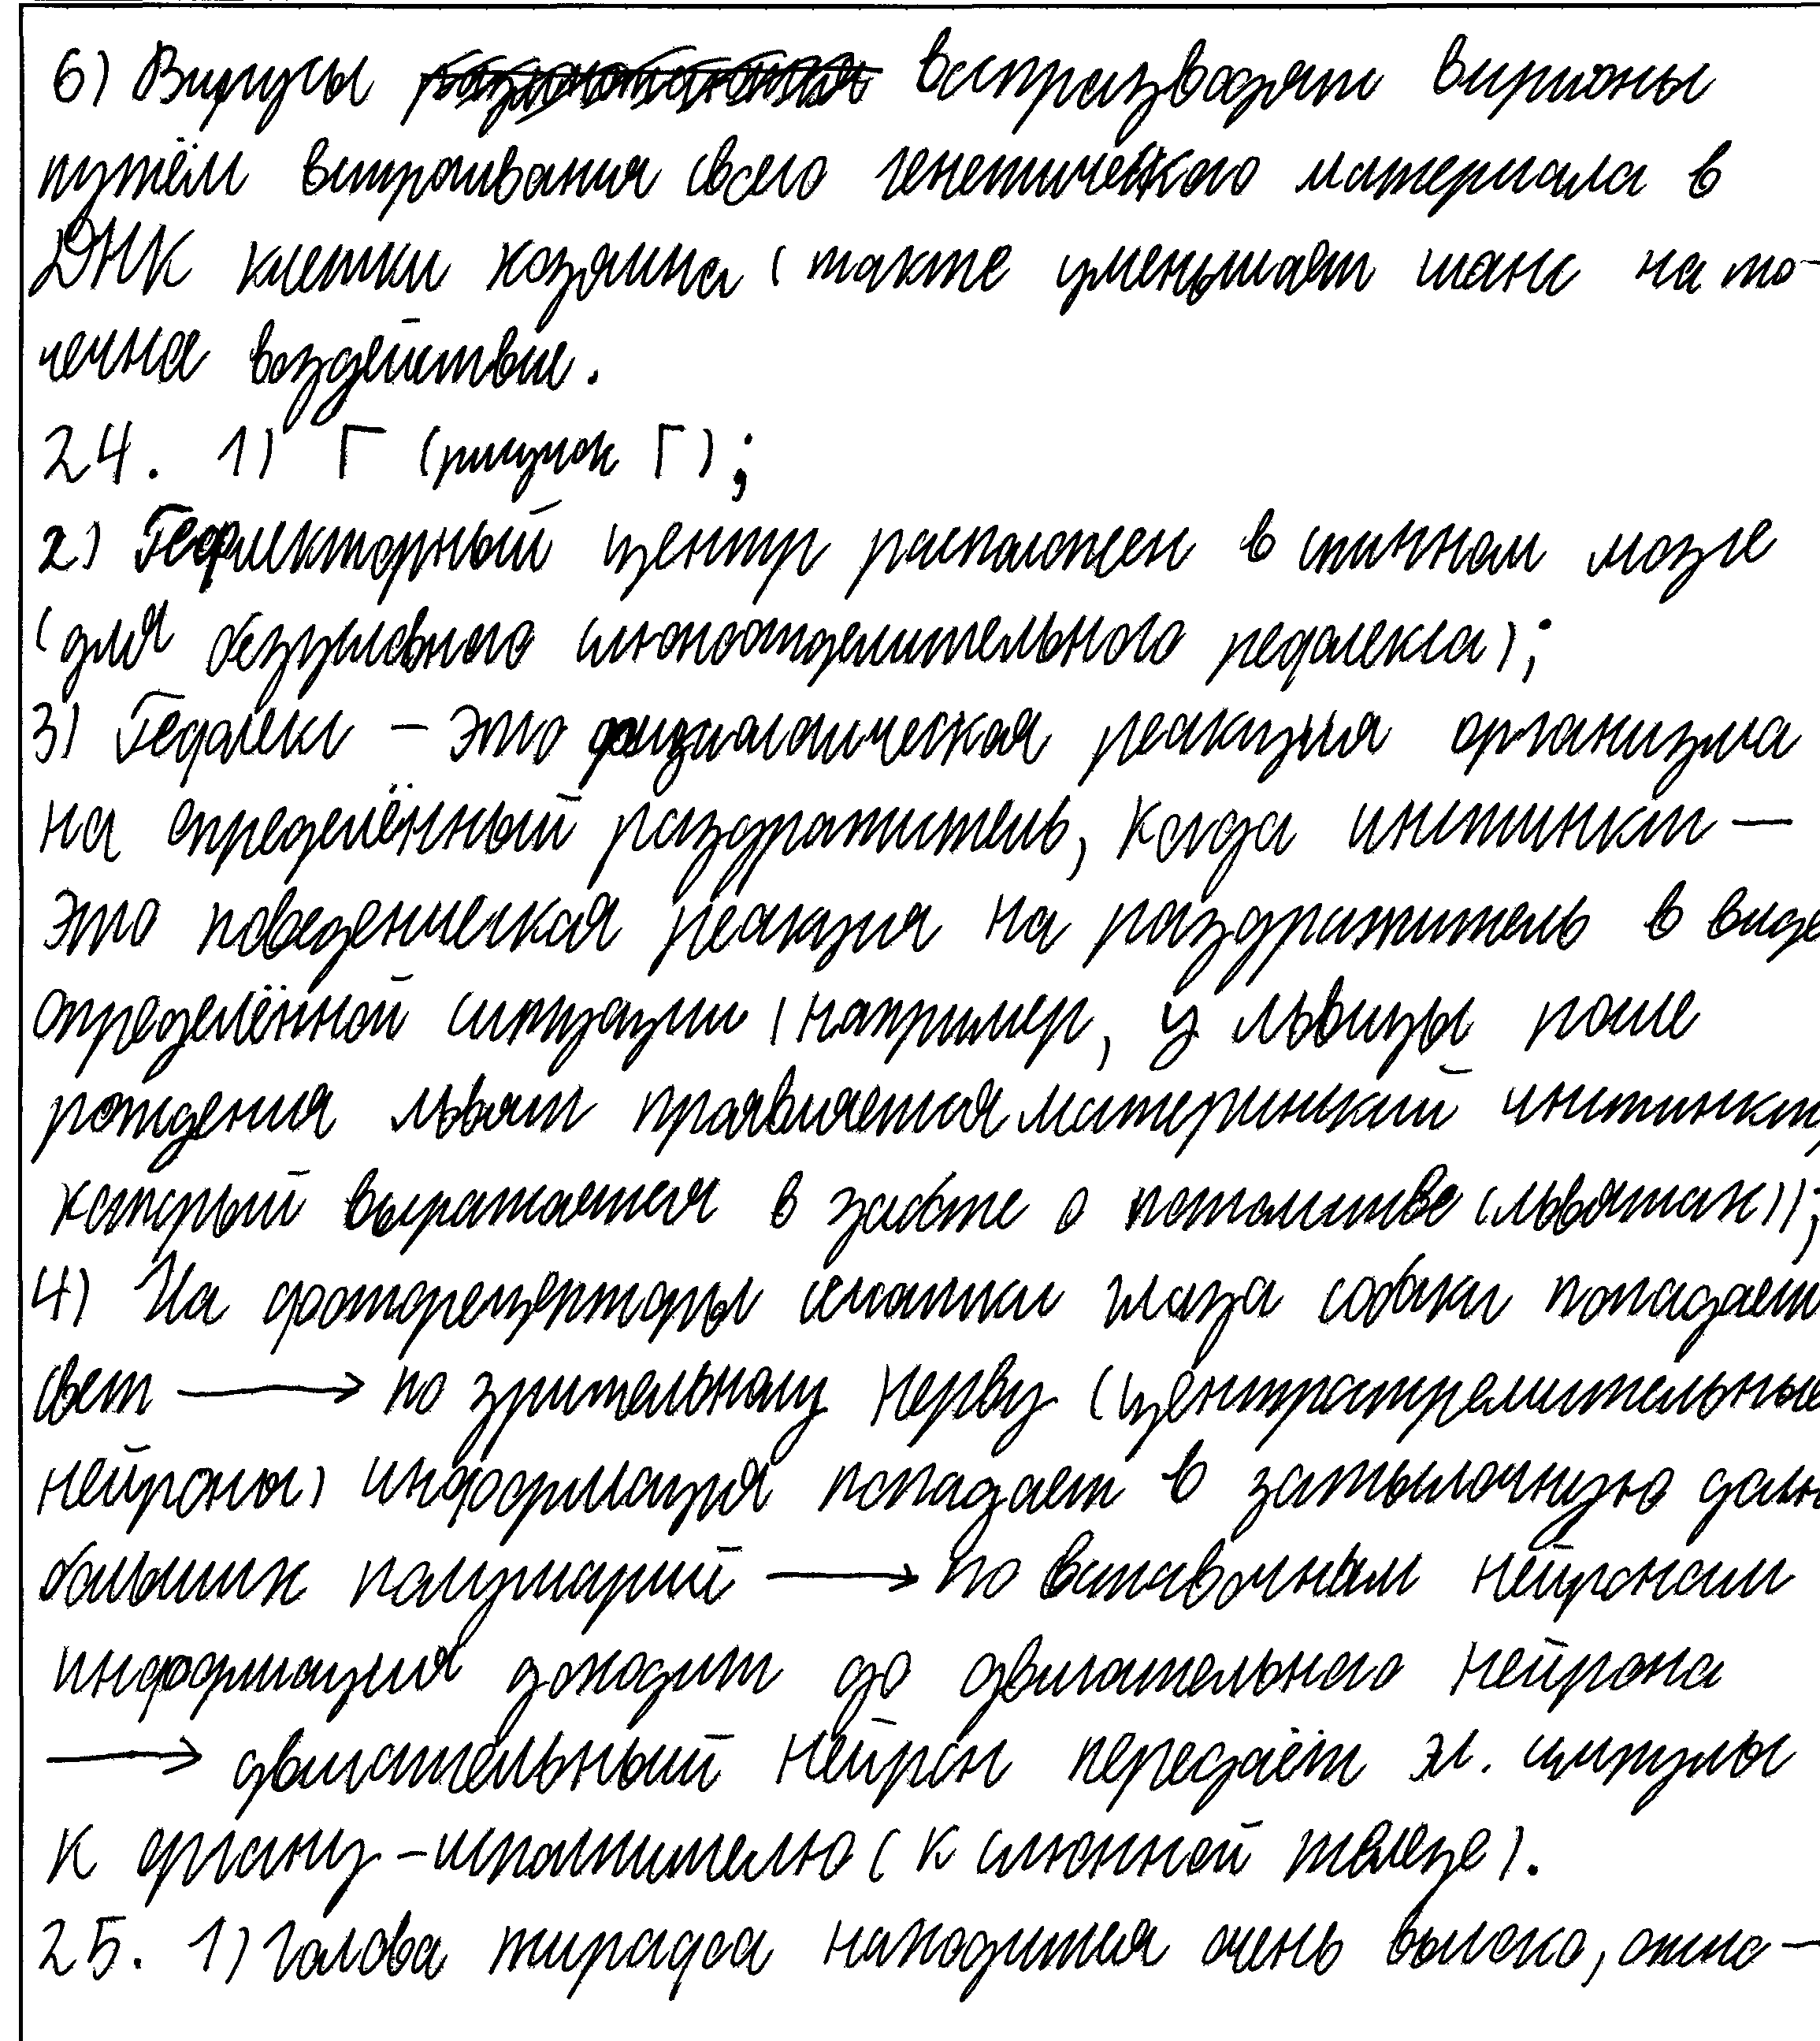 6) Вирусы воспроизводят вирионы
путём встраивания своего генетического материала в
ДНК клетки хозяина (также уменьшает шанс на то-
чечное воздействие.
24. 1) Г (рисунок Г);
2) Рефлекторный центр расположен в спинном мозге
(для безусловного слюноотделительного рефлекса);
3) Рефлекс – это физиологическая реакция организма
на определённый раздражитель, когда инстинкт –
это поведенческая реакция на раздражитель в виде
определённой ситуации (например, у львицы после
рождения львят проявляется материнский инстинкт,
который выражается в заботе о потомстве (львятах));
4) На фоторецепторы сетчатки глаза собаки попадает
свет → по зрительному нерву (центростремительные
нейроны) информация попадает в затылочную долю
больших полушарий → по вставочным нейронам
информация доходит до двигательного нейрона
→ двигательный нейрон передаёт эл. импульсы
к органу-исполнителю (к слюнной железе).
25. 1) Голова жирафа находится очень высоко, отно-